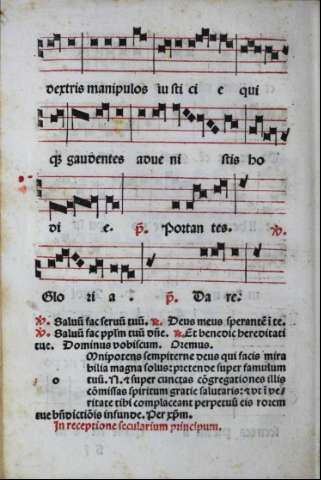 dextris manipulos iu sti ci e qui
q̃ gaudentes adue ni stis ho
di e. p̃. Portan tes. ꝟ.
Glo ri a. p̃. Da re.
ꝟ. Saluũ fac seruũ tuũ. ꝶ. Deus meus sperantẽ ĩ te.
ꝟ. Saluũ fac pp̃lm tuũ dñe. ꝶ. Et benedic hereditati
tue. Dominus vobiscum. Oremus.
Omnipotens sempiterne deus qui facis mira
bilia magna solus: pretende super famulum
o tuũ. N. ⁊ super cunctas cõgregationes illis
cõmissas spiritum gratie salutaris: ⁊ vt ĩ ve
ritate tibi complaceant perpetuũ eis rorem
tue bñdictiõis infunde. Per xp̃m.
In receptione secularium principum.